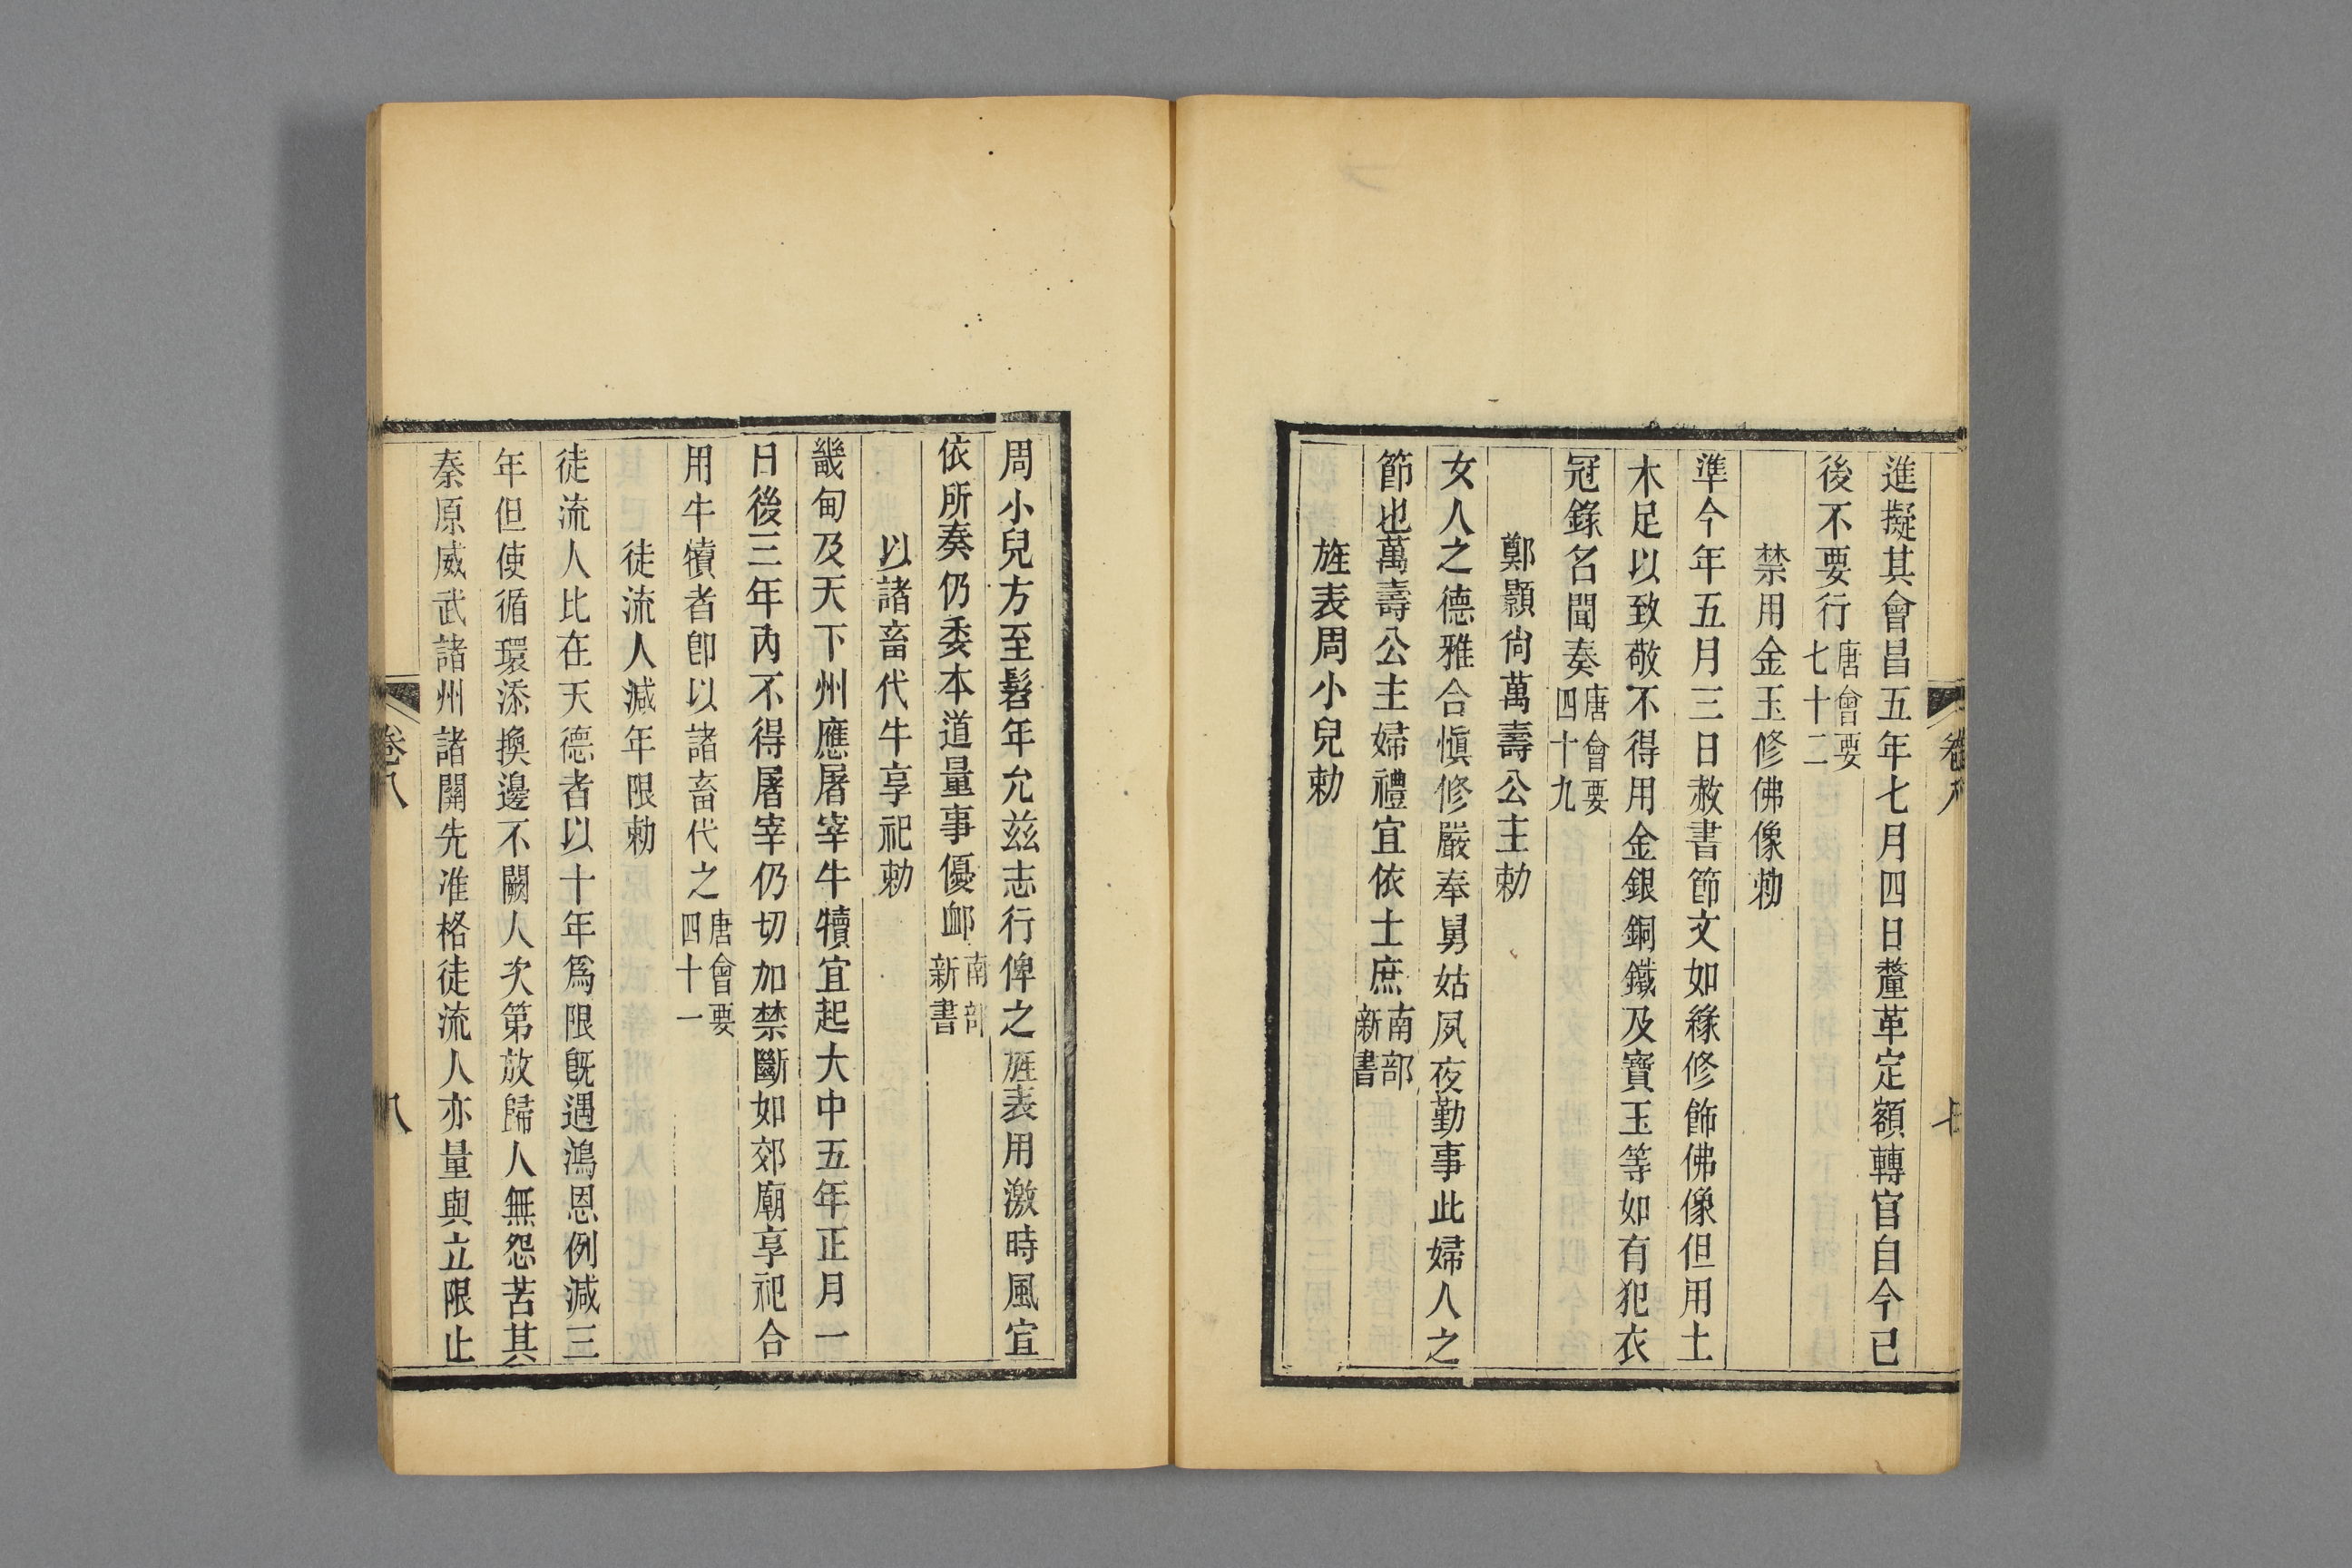 進擬其會昌五年七月四日釐革定額轉官自今已
後不要行唐會要七十二
禁用金玉修佛像勅
準今年五月三日赦書節文如緣修飾佛像但用土
木足以致敬不得用金銀銅鐵及寶玉等如有犯衣
冠錄名聞奏唐會要四十九
鄭顥尙萬壽公主勅
女人之德雅合愼修嚴奉舅姑夙夜勤事此婦人之
節也萬壽公主婦禮宜依士庶南部新書
旌表周小兒勅
周小兒方至髫年允茲志行俾之旌表用激時風宜
依所奏仍委本道量事優卹南部新書
以諸畜代牛享祀勅
畿甸及天下州應屠宰牛犢宜起大中五年正月一
日後三年內不得屠宰仍切加禁斷如郊廟享祀合
用牛犢者卽以諸畜代之唐會要四十一
徒流人減年限勅
徒流人比在天德者以十年爲限旣遇鴻恩例減三
年但使循環添換邊不闕人次第放歸人無怨苦其
秦原威武諸州諸關先准格徒流人亦量與立限止
卷八
八